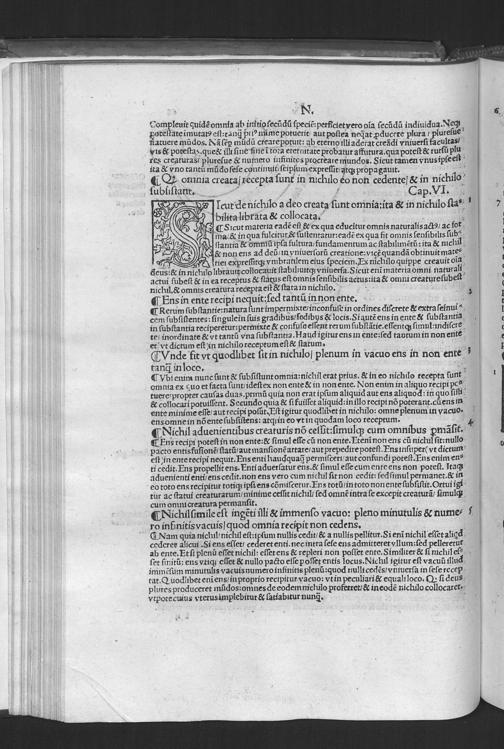 N.
Compleuit quidē omnia ab initio secūdū speciē: perficiet vero oīa secūdū indiuidua. Neqꝫ
statuere mūdos. Nā semp mūdū creare potuit: ab eterno illi aderat creādi vniuersi facultas/
vis & potestas. que & illi sine fine i tota eternitate probatur affutura. qua potest & rursū plu
res creaturas/ pluresue & numero infinitos procreare mundos. Sicut tamen vnus ipse est:
ita & vno tantū mūdo sese continuit/ seipsum expressit/ atqꝫ propagauit.
¶ Qꝫ omnia creata/ recepta sunt in nichilo eo non cedente/ & in nichilo
subsistant. Cap. VI.
SIcut de nichilo a deo creata sunt omnia: ita & in nichilo sta⸗ 1
bilita librata & collocata.
¶ Sicut materia eadē est & ex qua educitur omnis naturalis act⁹: ac for
ma: & in qua fulcitur/ & sustentatur: eadē ex qua fit omnis sensibilis sub⸗
stantia & omniū ipsa fultura/ fundamentum ac stabilimētū: ita & nichil
& non ens ad deū: in vniuersorū creatione: vicē quandā obtinuit mate⸗
riei expressitqꝫ vmbratilem eius speciem. Ex nichilo quippe creauit oīa
deus: & in nichilo librauit/ collocauit stabiliuitqꝫ vniuersa. Sicut eni materia omni naturali
actui subest & in ea receptus & fact⁹ est omnis sensibilis actus: ita & omni creature subest
nichil/ & omnis creatura recepta est & stata in nichilo.
¶ Ens in ente recipi nequit: sed tantū in non ente. 2
¶ Rerum substantie: natura sunt impermixte/ inconfuse/ in ordines discrete & extra seinui⸗
cem subsistentes: singule in suis gradibus/ sedibus & locis. Si autē ens in ente & substantia
in substantia reciperetur: permixte & confuse essent rerum substātie. essentqꝫ simul: indiscre
te: inordinate & vt tantū vna substantia. Haud igitur ens in ente: sed suorum in non ente
et vt dictum est in nichilo receptum est & statum.
¶ Vnde fit vt quodlibet sit in nichilo/ plenum in vacuo ens in non ente 3
tanqꝫ in loco.
¶ Vbi enim nunc sunt & subsistunt omnia: nichil erat prius. & in eo nichilo recepta sunt
omnia ex quo et facta sunt: idest ex non ente & in non ente. Non enim in aliquo recipi po⸗
tuere: propter causas duas. primū quia non erat ipsum aliquid aut ens aliquod: in quo sisti
& collocari potuissent. Secundo quia & si fuisset aliquid: in illo recipi nō poterant. cū ens in
ente minime esse: aut recipi possit. Est igitur quodlibet in nichilo: omne plenum in vacuo.
ens omne in nō ente subsistens: atqꝫ in eo vt in quodam loco receptum.
¶ Nichil aduenientibus creaturis nō cessit: simulqꝫ cum omnibus pmāsit. 4
¶ Ens recipi potest in non ente: & simul esse cū non ente. Etenī non ens cū nichil sit: nullo
pacto entis fusionē/ statū/ aut mansionē arcere/ aut prepedire potest. Ens insuper (vt dictum
est) in ente recipi nequit. Ens enti haudquaqꝫ permisceri: aut confundi potest. Ens enim en⸗
ti cedit. Ens propellit ens. Enti aduersatur ens. & simul esse cum ente ens non potest. Itaqꝫ
aduenienti enti/ ens cedit. non ens vero cum nichil sit non cedit: sed simul permanet. & in
eo toto ens recipitur totiqꝫ ipsi ens cōmiscetur. Ens totū in toto non ente subsistit. Ortui igi
tur ac statui creaturarum: minime cessit nichil: sed omnē intra se excepit creaturā: simulqꝫ
cum omni creatura permansit.
¶ Nichil simile est ingēti illi & immenso vacuo: pleno minutulis & nume⸗ 5
ro infinitis vacuis/ quod omnia recipit non cedens.
¶ Nam quia nichil/ nichil est: ipsum nullis cedit: & a nullis pellitur. Si eni nichil esset aliqd
cederet alicui. Si ens esset: cederet enti. nec intra sese ens admitteret vllum: sed pelleretur
ab ente. Et si plenū esset nichil: esset ens & repleri non posset ente. Similiter & si nichil es⸗
set finitū: ens vtiqꝫ esset & nullo pacto esse posset entis locus. Nichil igitur est vacuū illud
immēsum minutulis vacuis numero infinitis plenū: quod nulli cedēs/ vniuersa in sese recep
tat. Quodlibet eni ens/ in proprio recipitur vacuo: vt in peculiari & equali loco. Qꝫ si deus
plures produceret mūdos: omnes de eodem nichilo proferret/ & in eodē nichilo collocaret.
vtpote cuius vterus implebitur & satiabitur nunqꝫ.